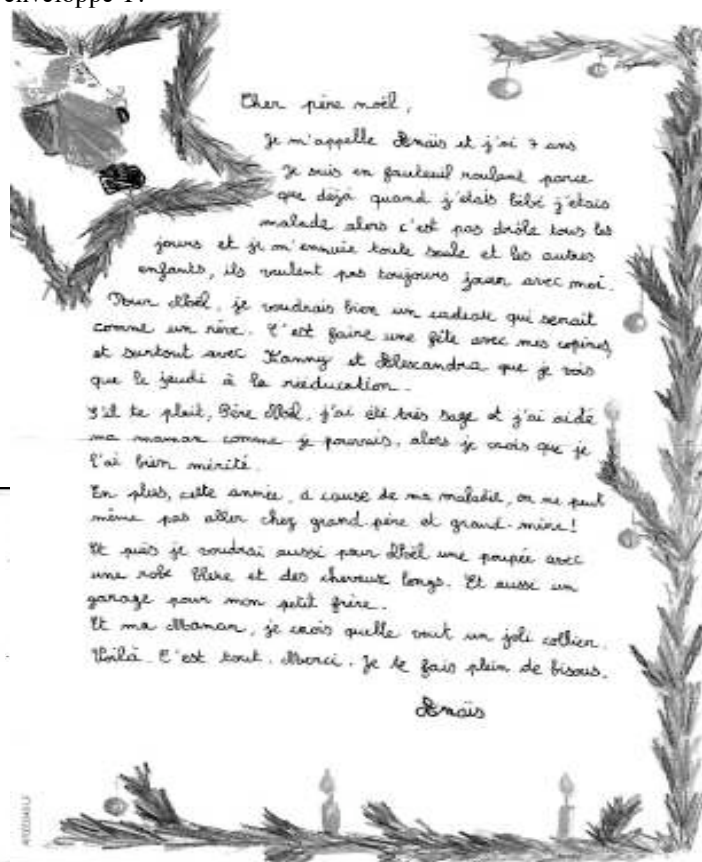 enveloppe
Cher père noël,
Je m'appelle Anaïs et j'ai 7 ans
Je suis en fauteuil roulant parce
que déjà quand j'étais bébé j'étais
malade alors c'est pas drôle tous les
jours et je m'ennuie toute seule et les autres
enfants, ils veulent pas toujours jouer avec moi.
Pour Noël, je voudrais bien un cadeau qui serait
comme un rêve. C'est faire une fête avec mes copines
et surtout avec Fanny et Alexandra que je vois
que le jeudi à la rééducation.
S'il te plait, Père Noël, j'ai été très sage et j'ai aidé
ma maman comme je pouvais, alors je crois que je
l'ai bien mérité.
En plus, cette année, à cause de ma maladie, on ne peut
même pas aller chez grand-père et grand-mère!
Et puis je voudrai aussi pour Noël une poupée avec
une robe bleue et des cheveux longs. Et aussi un
garage pour mon petit frère.
Et ma Maman, je crois quelle veut un joli collier.
Voilà. C'est tout. Merci. Je te fais plein de bisous.
Anaïs